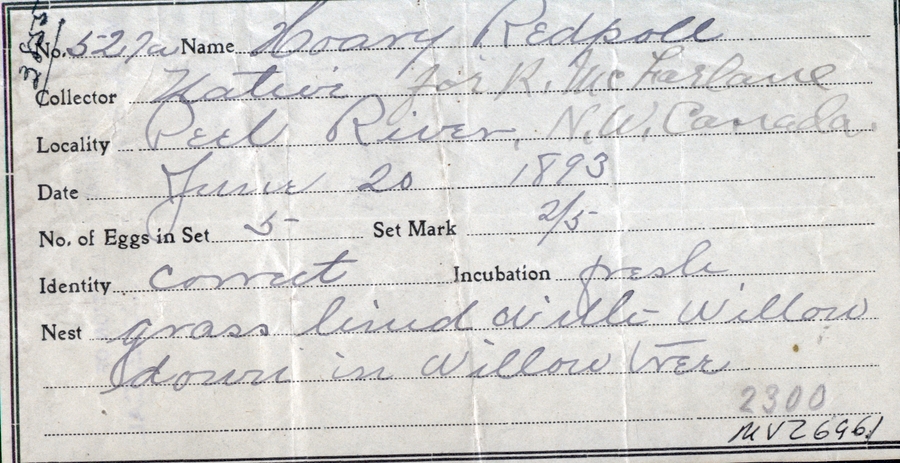 No. 527a Name Hoary Redpoll
Collector Native for R. McFarlane
Locality Peel River, N.W. Canada.
Date June 20 1893
No. of Eggs in Set 5 Set Mark 2/5
Identity correct Incubation fresh
Nest grass lined with Willow
down in Willow tree
2300
MVZ 6961